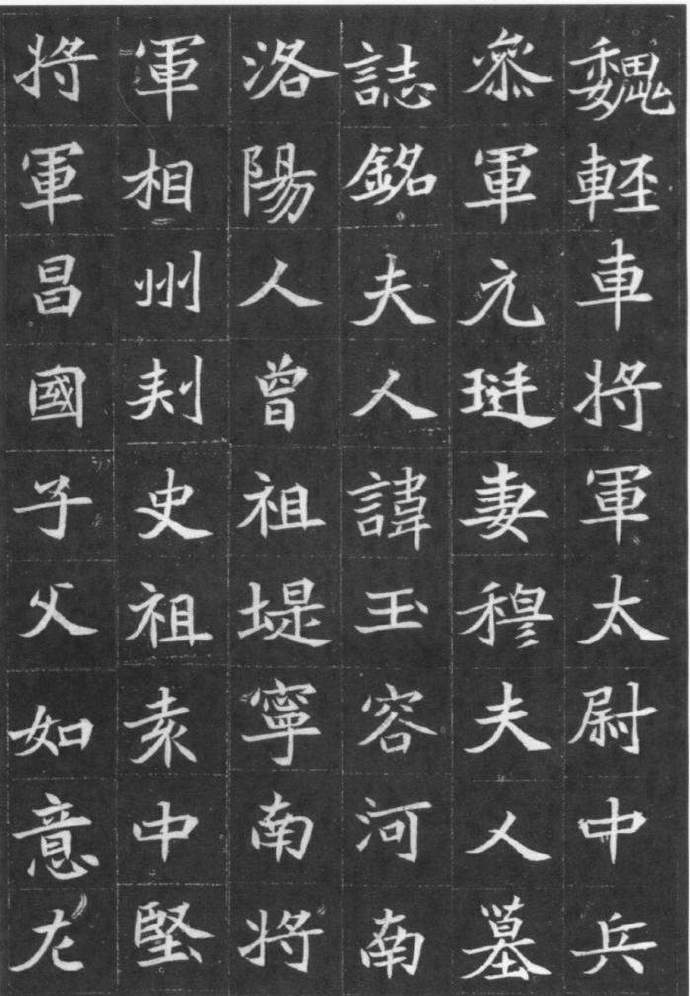 魏輕車将軍太尉中兵
參軍元珽妻穆夫人墓
誌銘夫人諱玉容河南
洛陽人曾祖堤寧南将
軍相州刺史祖袁中堅
将軍昌國子父如意左